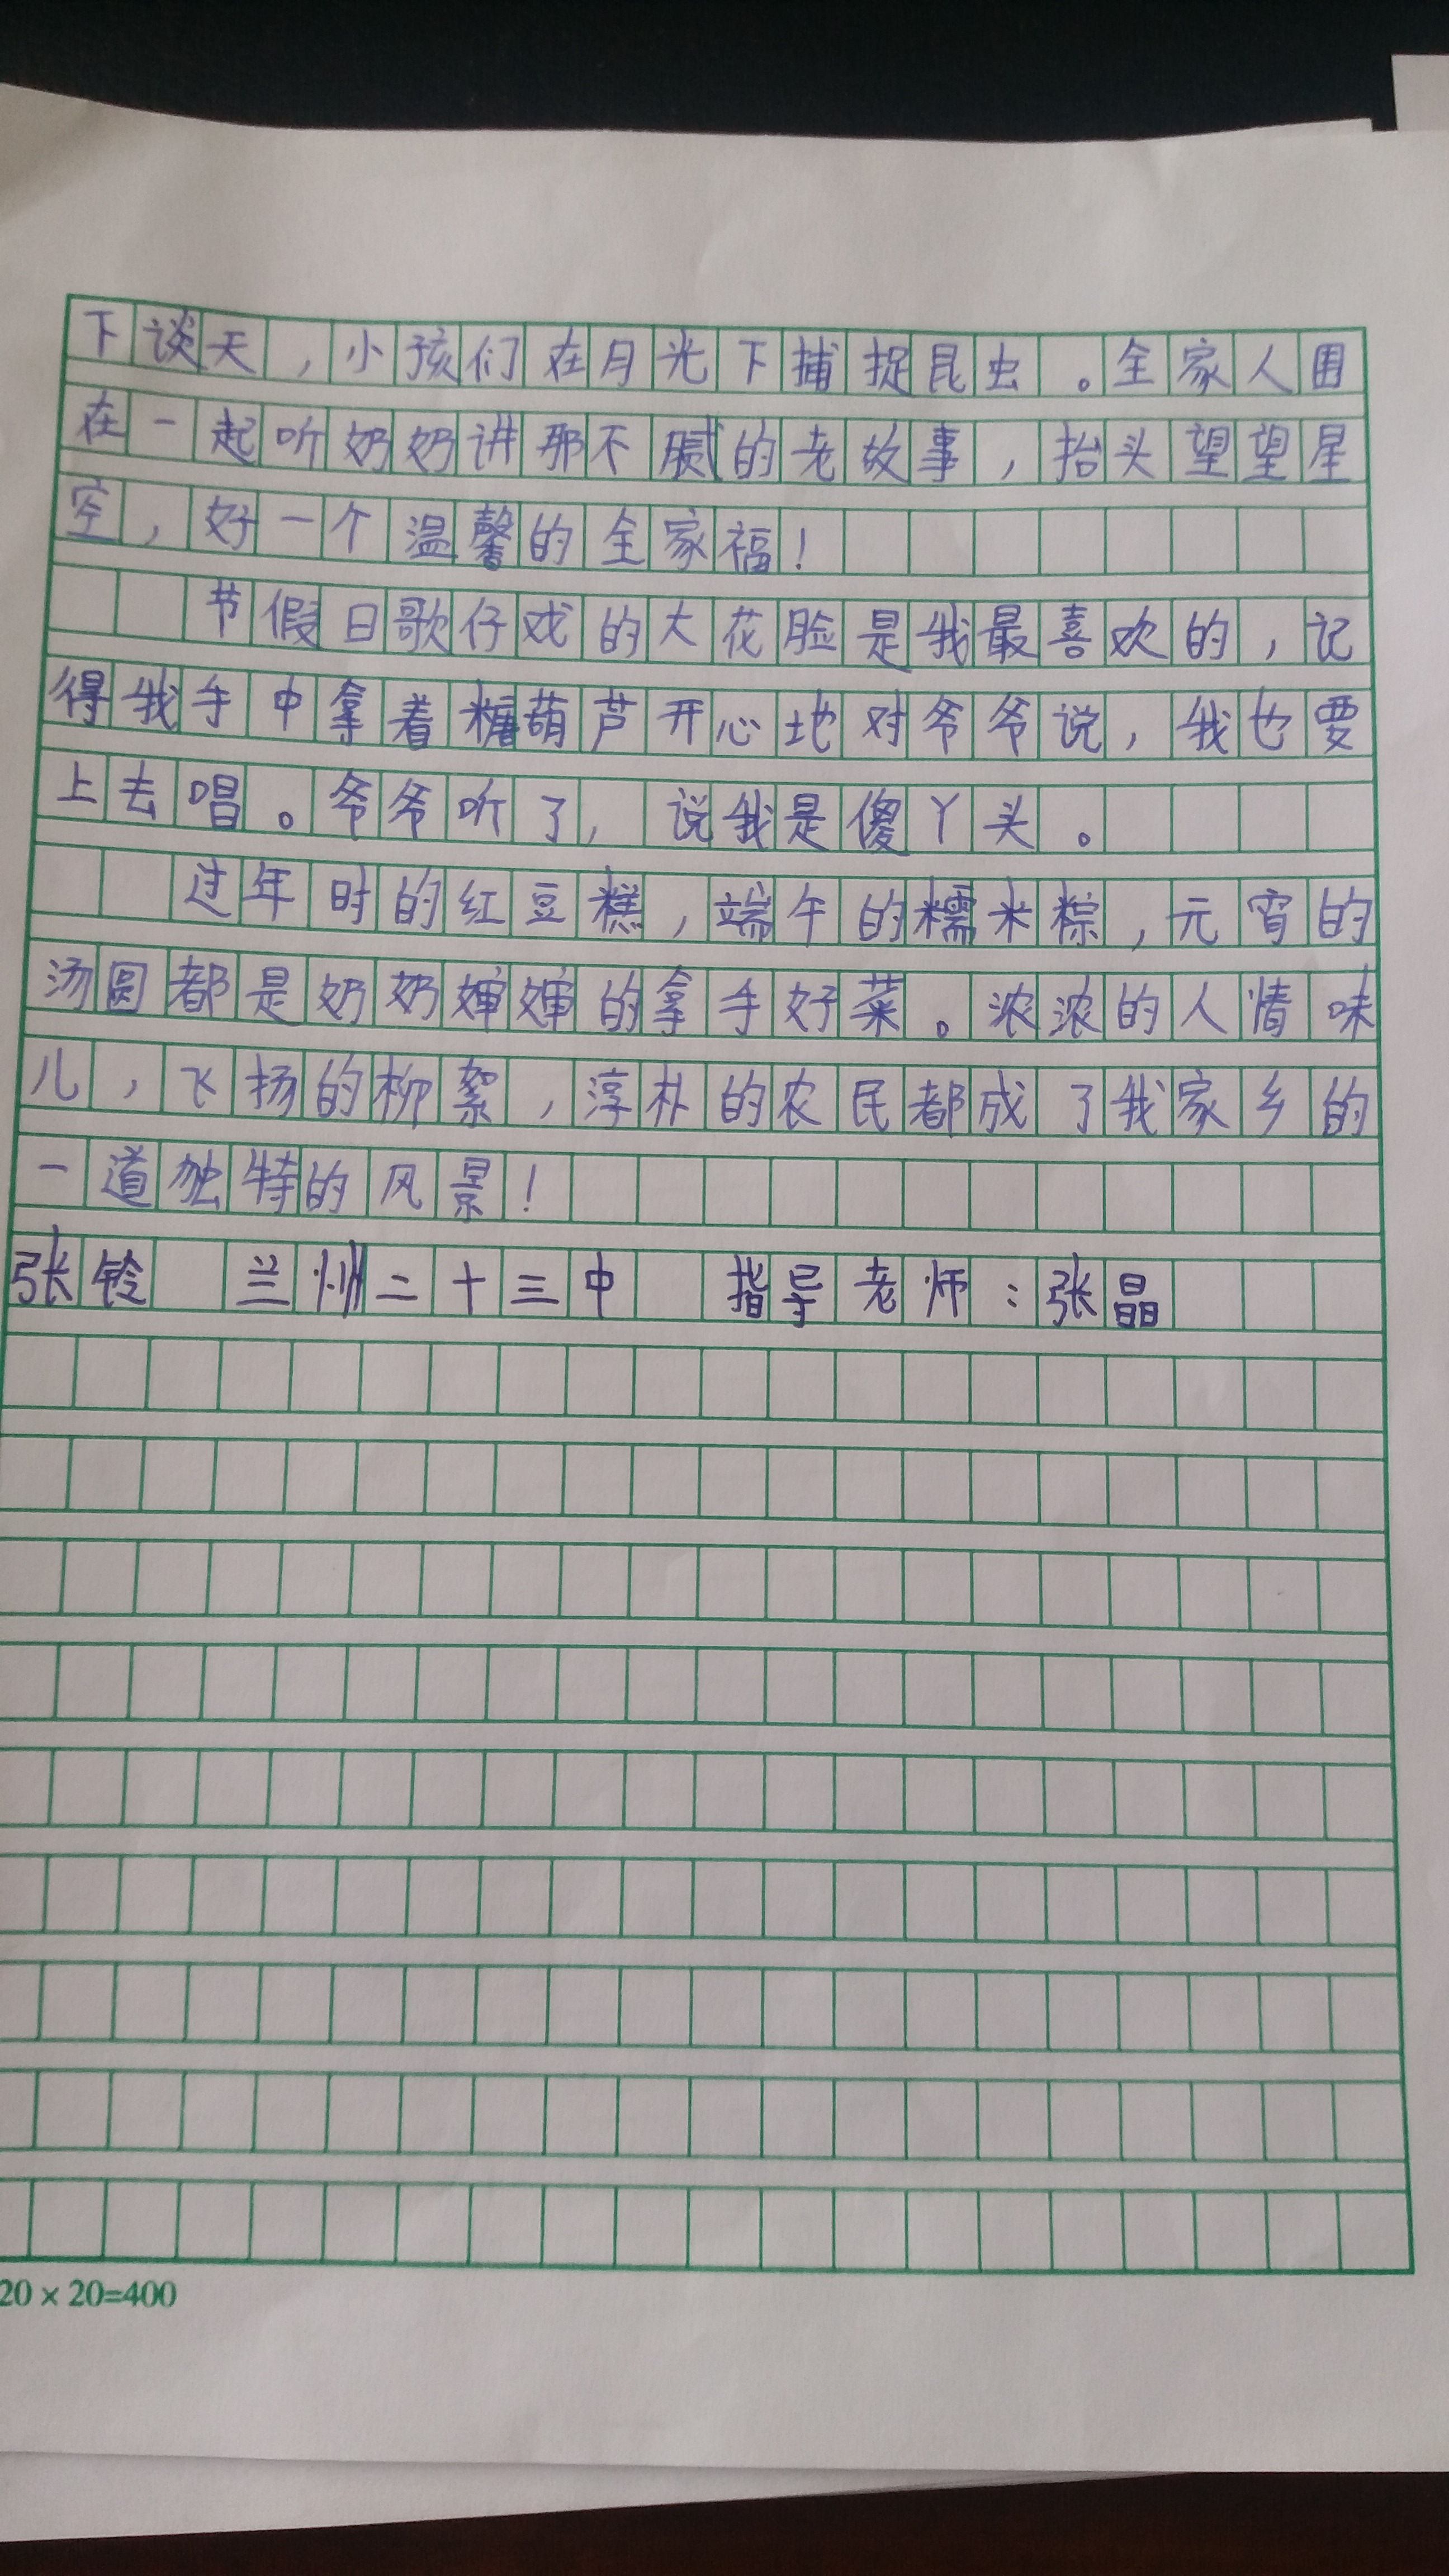 下谈天，小孩们在月光下捕捉昆虫。全家人围
在一起听奶奶讲那不腻的老故事，抬头望望星
空，好一个温馨的全家福！
节假日歌仔戏的大花脸是我最喜欢的，记
得我手中拿着糖葫芦开心地对爷爷说，我也要
上去唱。爷爷听了，说我是傻丫头。
过年时的红豆糕，端午的糯米粽，元宵的
汤圆都是奶奶婶婶的拿手好菜。浓浓的人情味
儿，飞扬的柳絮，淳朴的农民都成了我家乡的
一道独特的风景！
张铃 兰州二十三中 指导老师：张晶
20×20=400